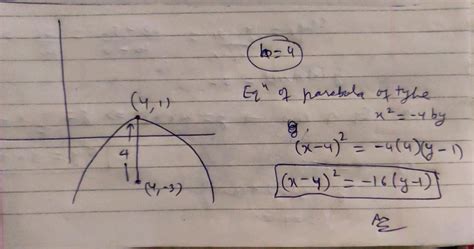 b = 4
Eqⁿ of parabola of type
x² = -4by
(x-4)² = -4(4)(y-1)
(x-4)² = -16(y-1)
(4,1)
4
(4,-3)